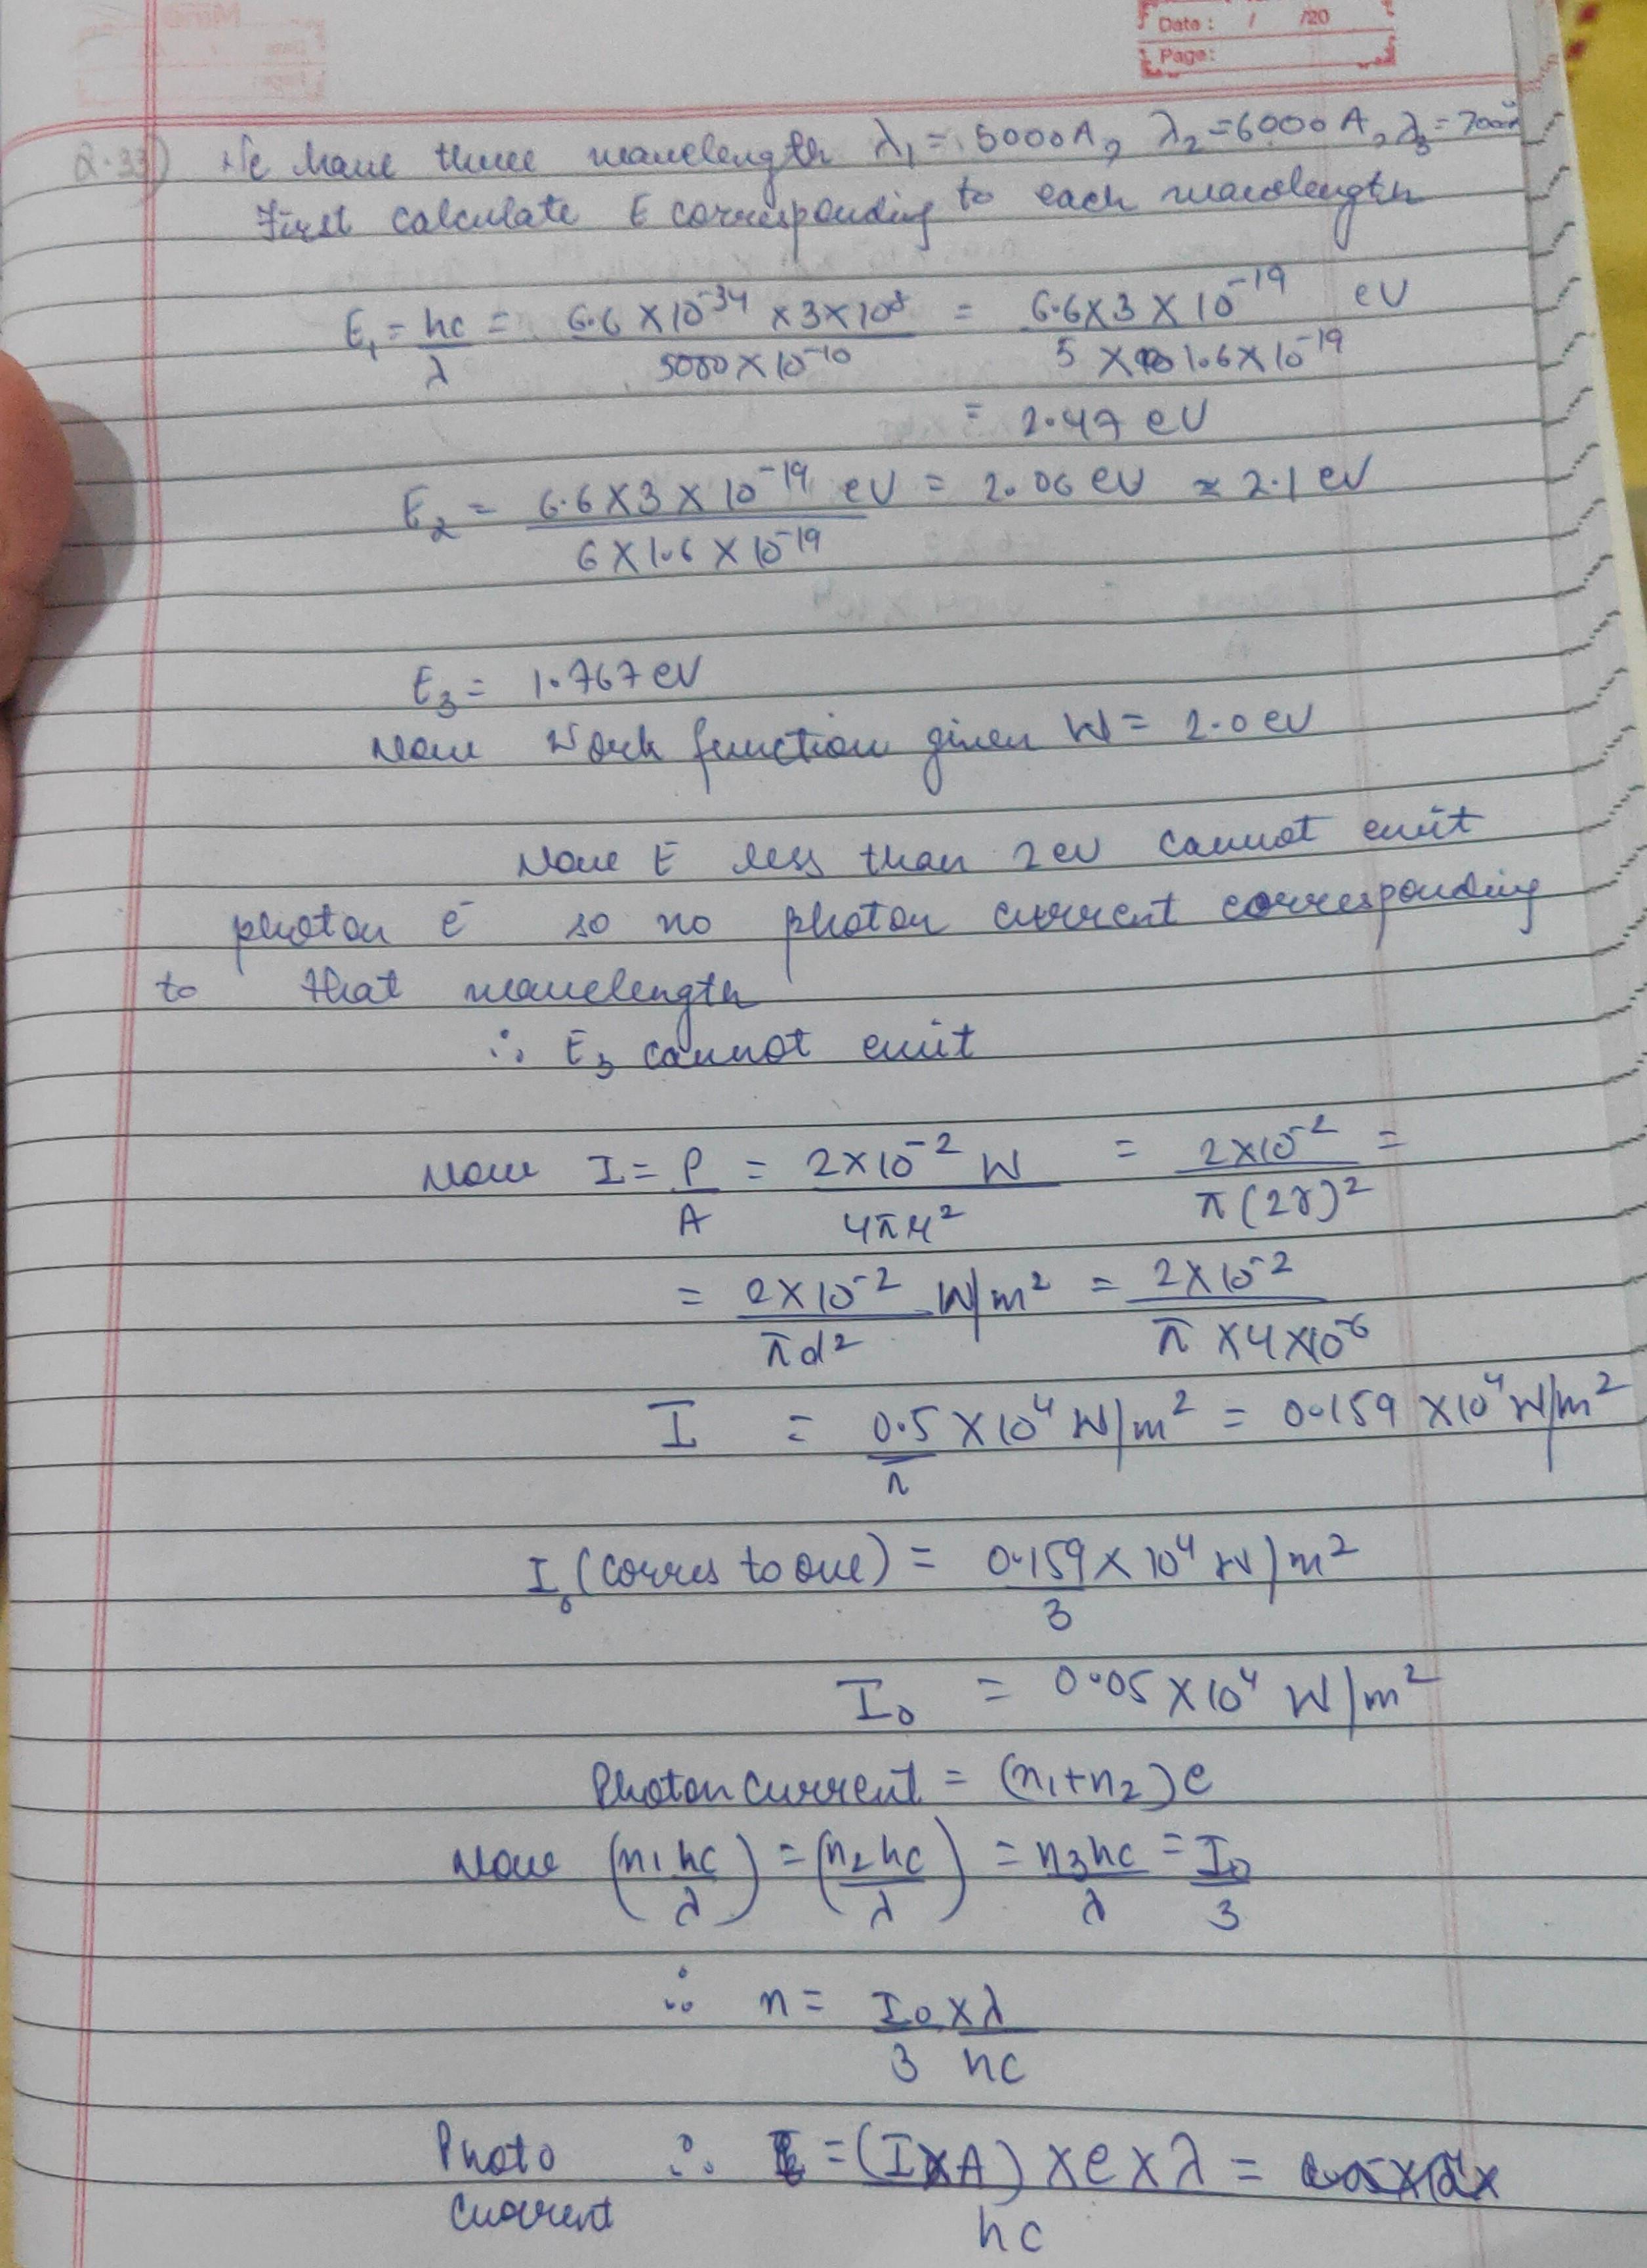 Date : / /20
Page:
Q.33) We have three wavelength λ₁ = 5000A, λ₂ = 6000A, λ₃ = 7000A
First calculate E corresponding to each wavelength
E₁ = hc/λ = 6.6 × 10⁻³⁴ × 3 × 10⁸ / 5000 × 10⁻¹⁰ = 6.6 × 3 × 10⁻¹⁹ / 5 × 1.6 × 10⁻¹⁹ eV
= 2.47 eV
E₂ = 6.6 × 3 × 10⁻¹⁹ / 6 × 1.6 × 10⁻¹⁹ eV = 2.06 eV ≈ 2.1 eV
E₃ = 1.767 eV
Now Work function given W = 2.0 eV
Now E less than 2 ev cannot emit
photon e⁻ so no photon current corresponding
to that wavelength
∴ E₃ cannot emit
Now I = P/A = 2×10⁻² W / 4πr² = 2×10⁻² / π(2r)² =
= 2×10⁻² / πd² W/m² = 2×10⁻² / π × 4×10⁻⁶
I = 0.5/π × 10⁴ W/m² = 0.159 × 10⁴ W/m²
I₀ (corres to one) = 0.159 × 10⁴ / 3 W/m²
I₀ = 0.05 × 10⁴ W/m²
Photon current = (n₁+n₂)e
Now (n₁hc/λ) = (n₂hc/λ) = n₃hc/λ = I₀/3
∴ n = I₀ × λ / 3 hc
Photo ∴ = (I×A) × e × λ / hc =
Current